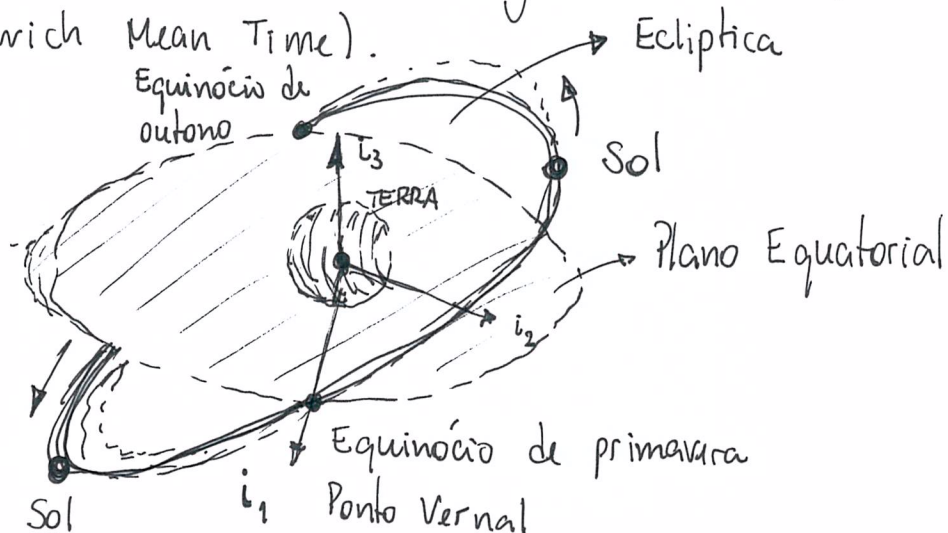 wich Mean Time).
Ecliptica
Equinócio de
outono
i3
Sol
TERRA
Plano Equatorial
i2
Equinócio de primavera
i1
Ponto Vernal
Sol